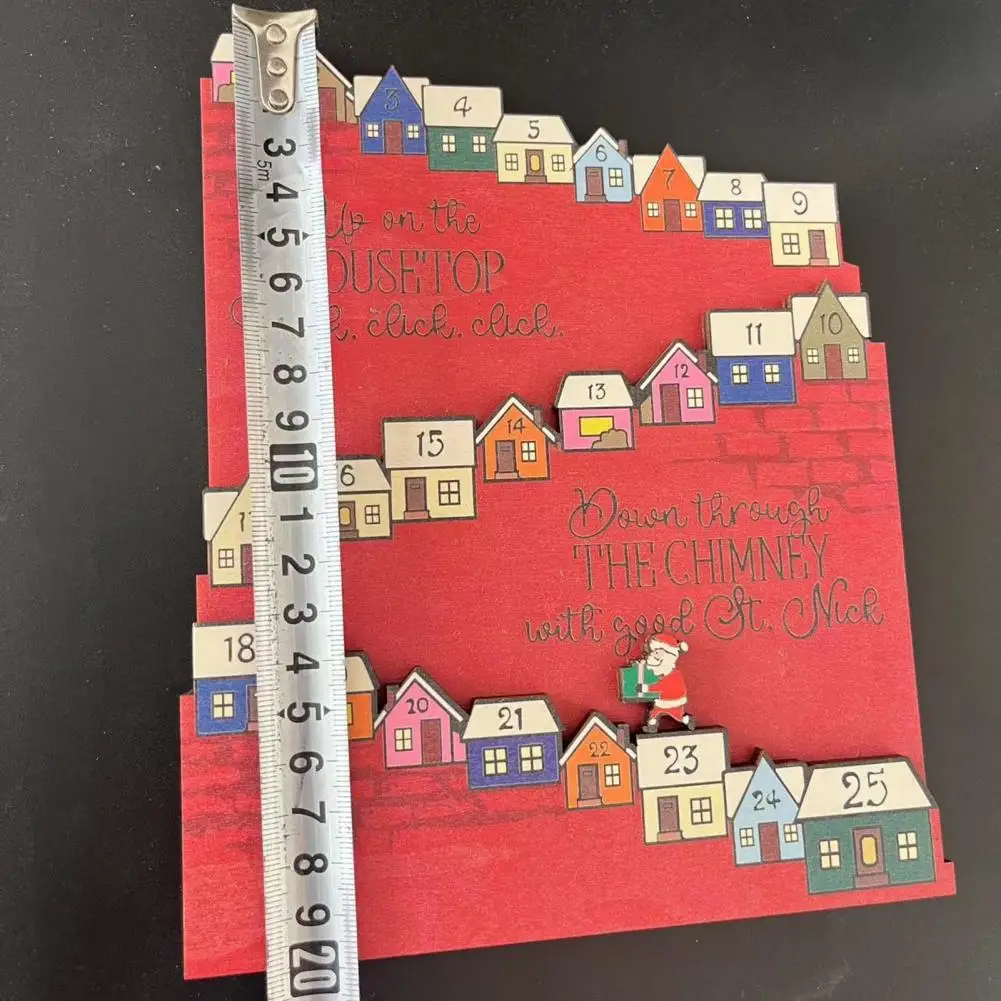 3
4
5
6
7
8
9
Up on the
OUSETOP
, click, click.
11
10
12
13
14
15
6
17
Down through
THE CHIMNEY
with good St. Nick
18
20
21
22
23
24
25
3
5m
4
5
6
7
8
9
10
1
2
3
4
5
6
7
8
9
20